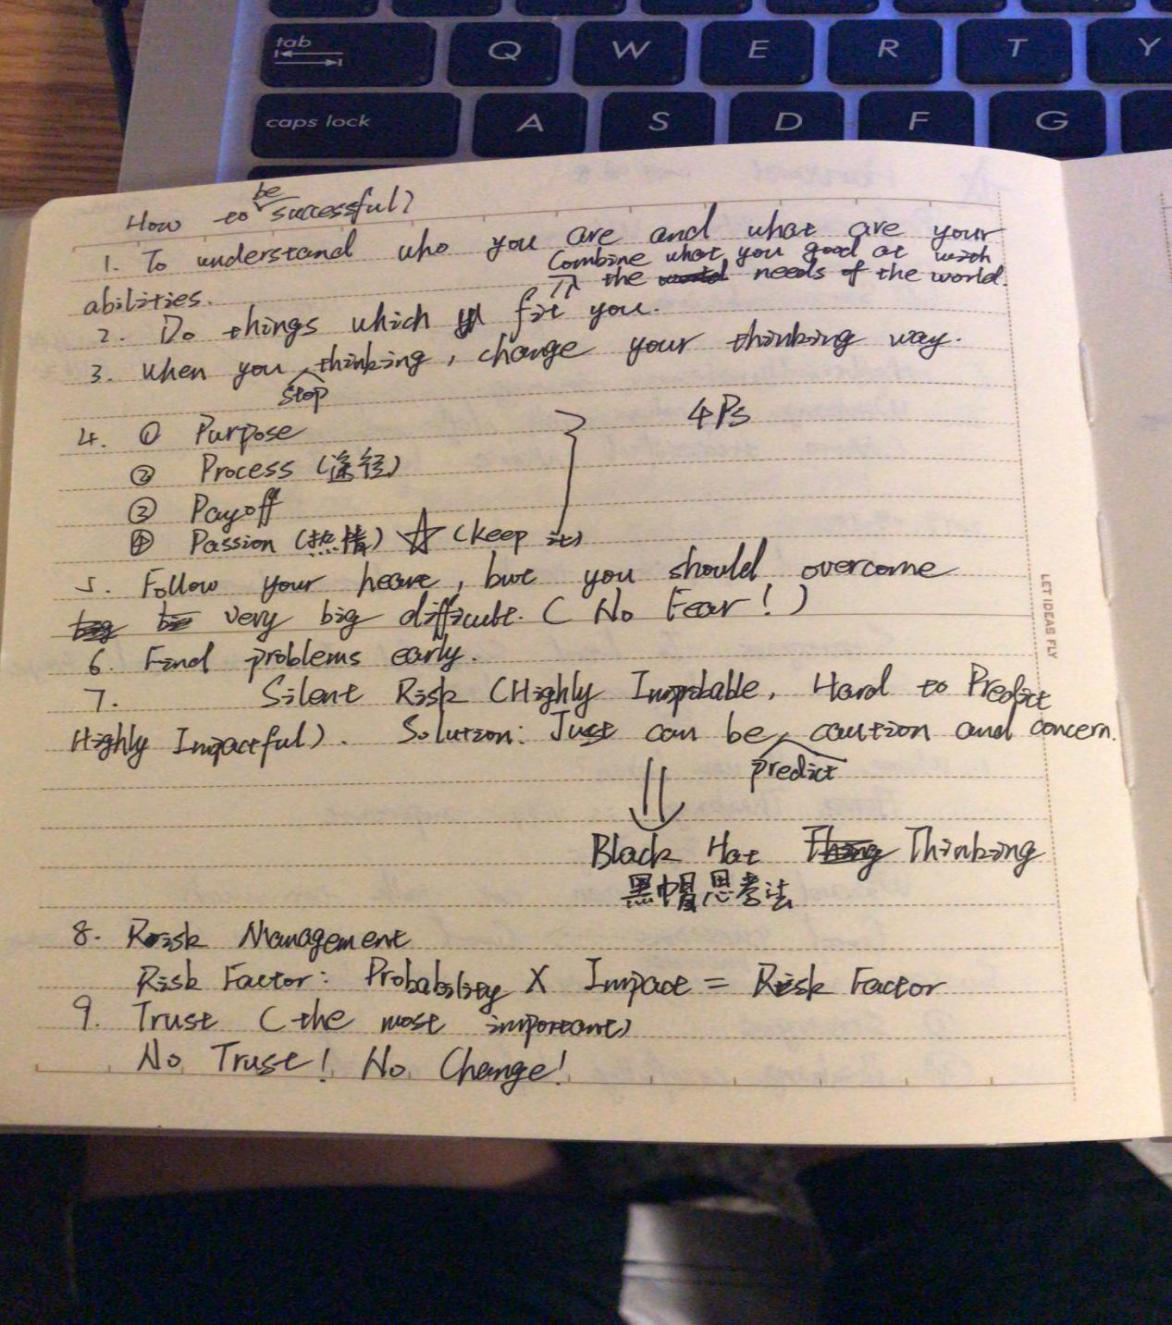 tab
Q W E R T Y
caps lock A S D F G
How to be successful?
1. To understand who you are and what are your
abilities.
Combine what you good at with
the needs of the world.
2. Do things which fit you.
3. When you stop thinking, change your thinking way.
4. ① Purpose
② Process (途径)
③ Payoff
④ Passion (热情) ☆ (keep it)
4Ps
5. Follow your heart, but you should overcome
very big difficult. (No Fear!)
6. Find problems early.
7. Silent Risk (Highly Improbable, Hard to Predict
Highly Impactful). Solution: Just can be predict caution and concern.
Black Hat Thinking
黑帽思考法
8. Risk Management
Risk Factor: Probability X Impact = Risk Factor
9. Trust (the most important)
No Trust! No Change!
LET IDEAS FLY